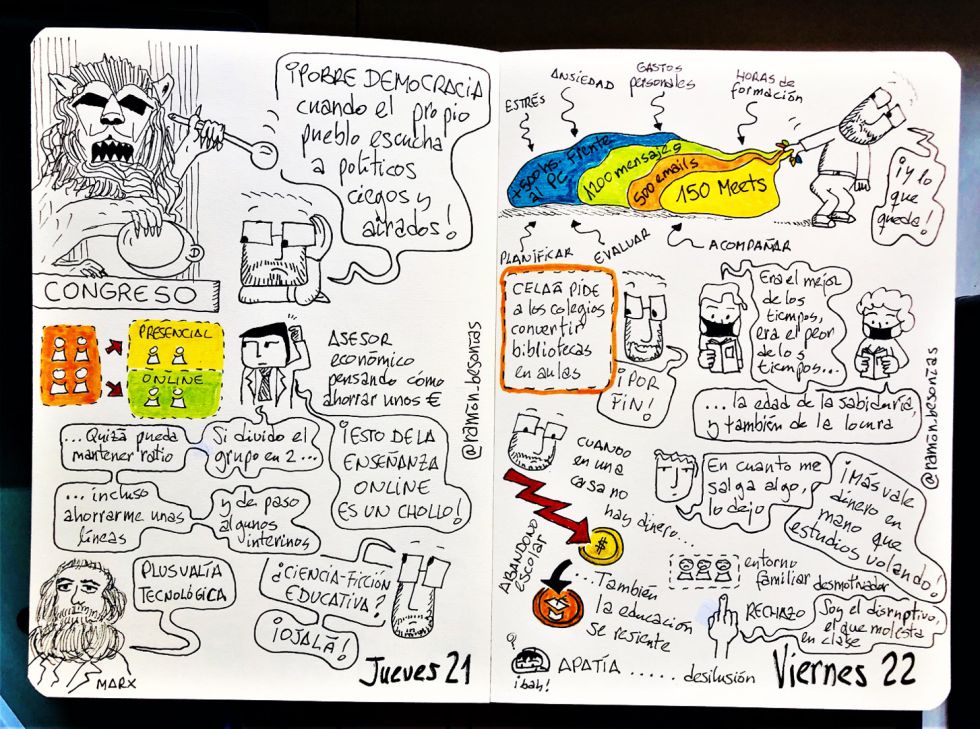 ¡POBRE DEMOCRACIA
cuando el propio
pueblo escucha
a políticos
ciegos y
airados!
CONGRESO
PRESENCIAL
ONLINE
ASESOR
económico
pensando cómo
ahorrar unos €
@ramon_besonias
... Quizá pueda
mantener ratio
Si divido el
grupo en 2...
¡ESTO DE LA
ENSEÑANZA
ONLINE
ES UN CHOLLO!
...incluso
ahorrarme unas
líneas
y de paso
algunos
interinos
PLUSVALÍA
TECNOLÓGICA
MARX
¿CIENCIA-FICCIÓN
EDUCATIVA?
¡OJALÁ!
Jueves 21
ESTRÉS
ANSIEDAD
GASTOS
personales
HORAS de
formación
+500 hs. frente
al PC
1100 mensajes
500 emails
150 Meets
¡y lo
que
quede!
PLANIFICAR
EVALUAR
ACOMPAÑAR
CELAÁ PIDE
a los colegios
convertir
bibliotecas
en aulas
¡POR
FIN!
Era el mejor
de los
tiempos,
era el peor
de los
tiempos...
... la edad de la sabiduría,
y también de la locura
@ramon_besonias
CUANDO
en una
casa no
hay dinero...
ABANDONO
escolar
$
... También
la educación
se resiente
En cuanto me
salga algo,
lo dejo
¡Más vale
dinero en
mano que
estudios volando!
entorno
familiar desmotivador
RECHAZO
Son el disruptivo,
el que molesta
en clase
¡bah!
APATÍA ..... desilusión
Viernes 22